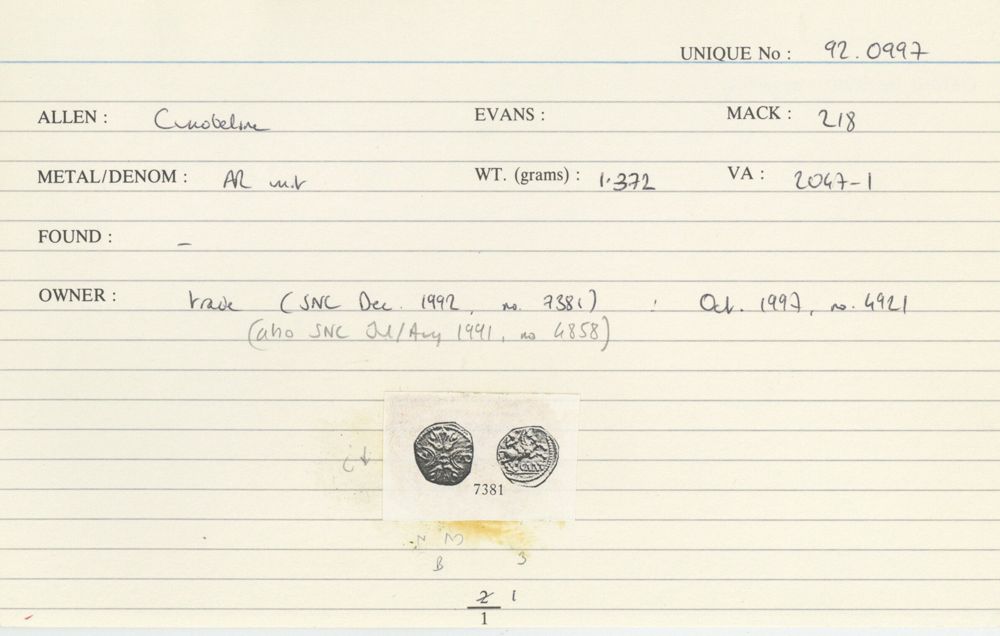 UNIQUE No : 92.0997
ALLEN : Cunobeline EVANS : MACK : 218
METAL/DENOM : AR unit WT. (grams) : 1.372 VA : 2047-1
FOUND : –
OWNER : trade (SNC Dec. 1992, no. 7381) : Oct. 1997, no. 4921
(also SNC Jul/Aug 1991, no 4858)
7381
B 3
2 1
1